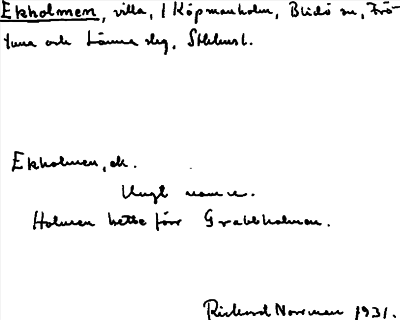 Ekholmen, villa, / Köpmanholm, Blidö sn, Frö-
tuna och Länna slg, Sthlms l.
Ekholmen, ek.
Ungt namn.
Holmen hette förr Grabbholmen.
Rickard Norrman 1931.